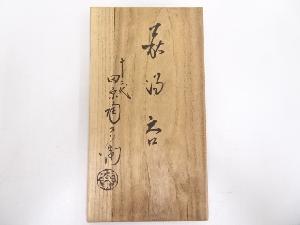 萩湯呑
十二代
田原陶兵衛